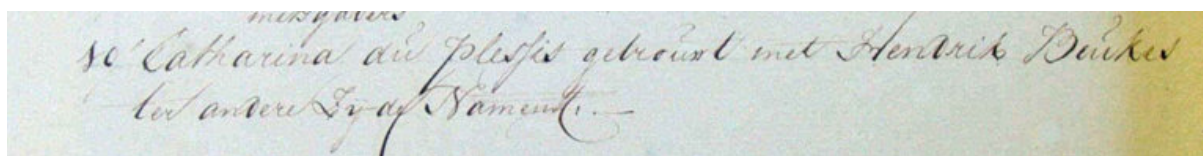 Catharina du Plessis getrouwt met Hendrik Beukes
ter andere Zyde